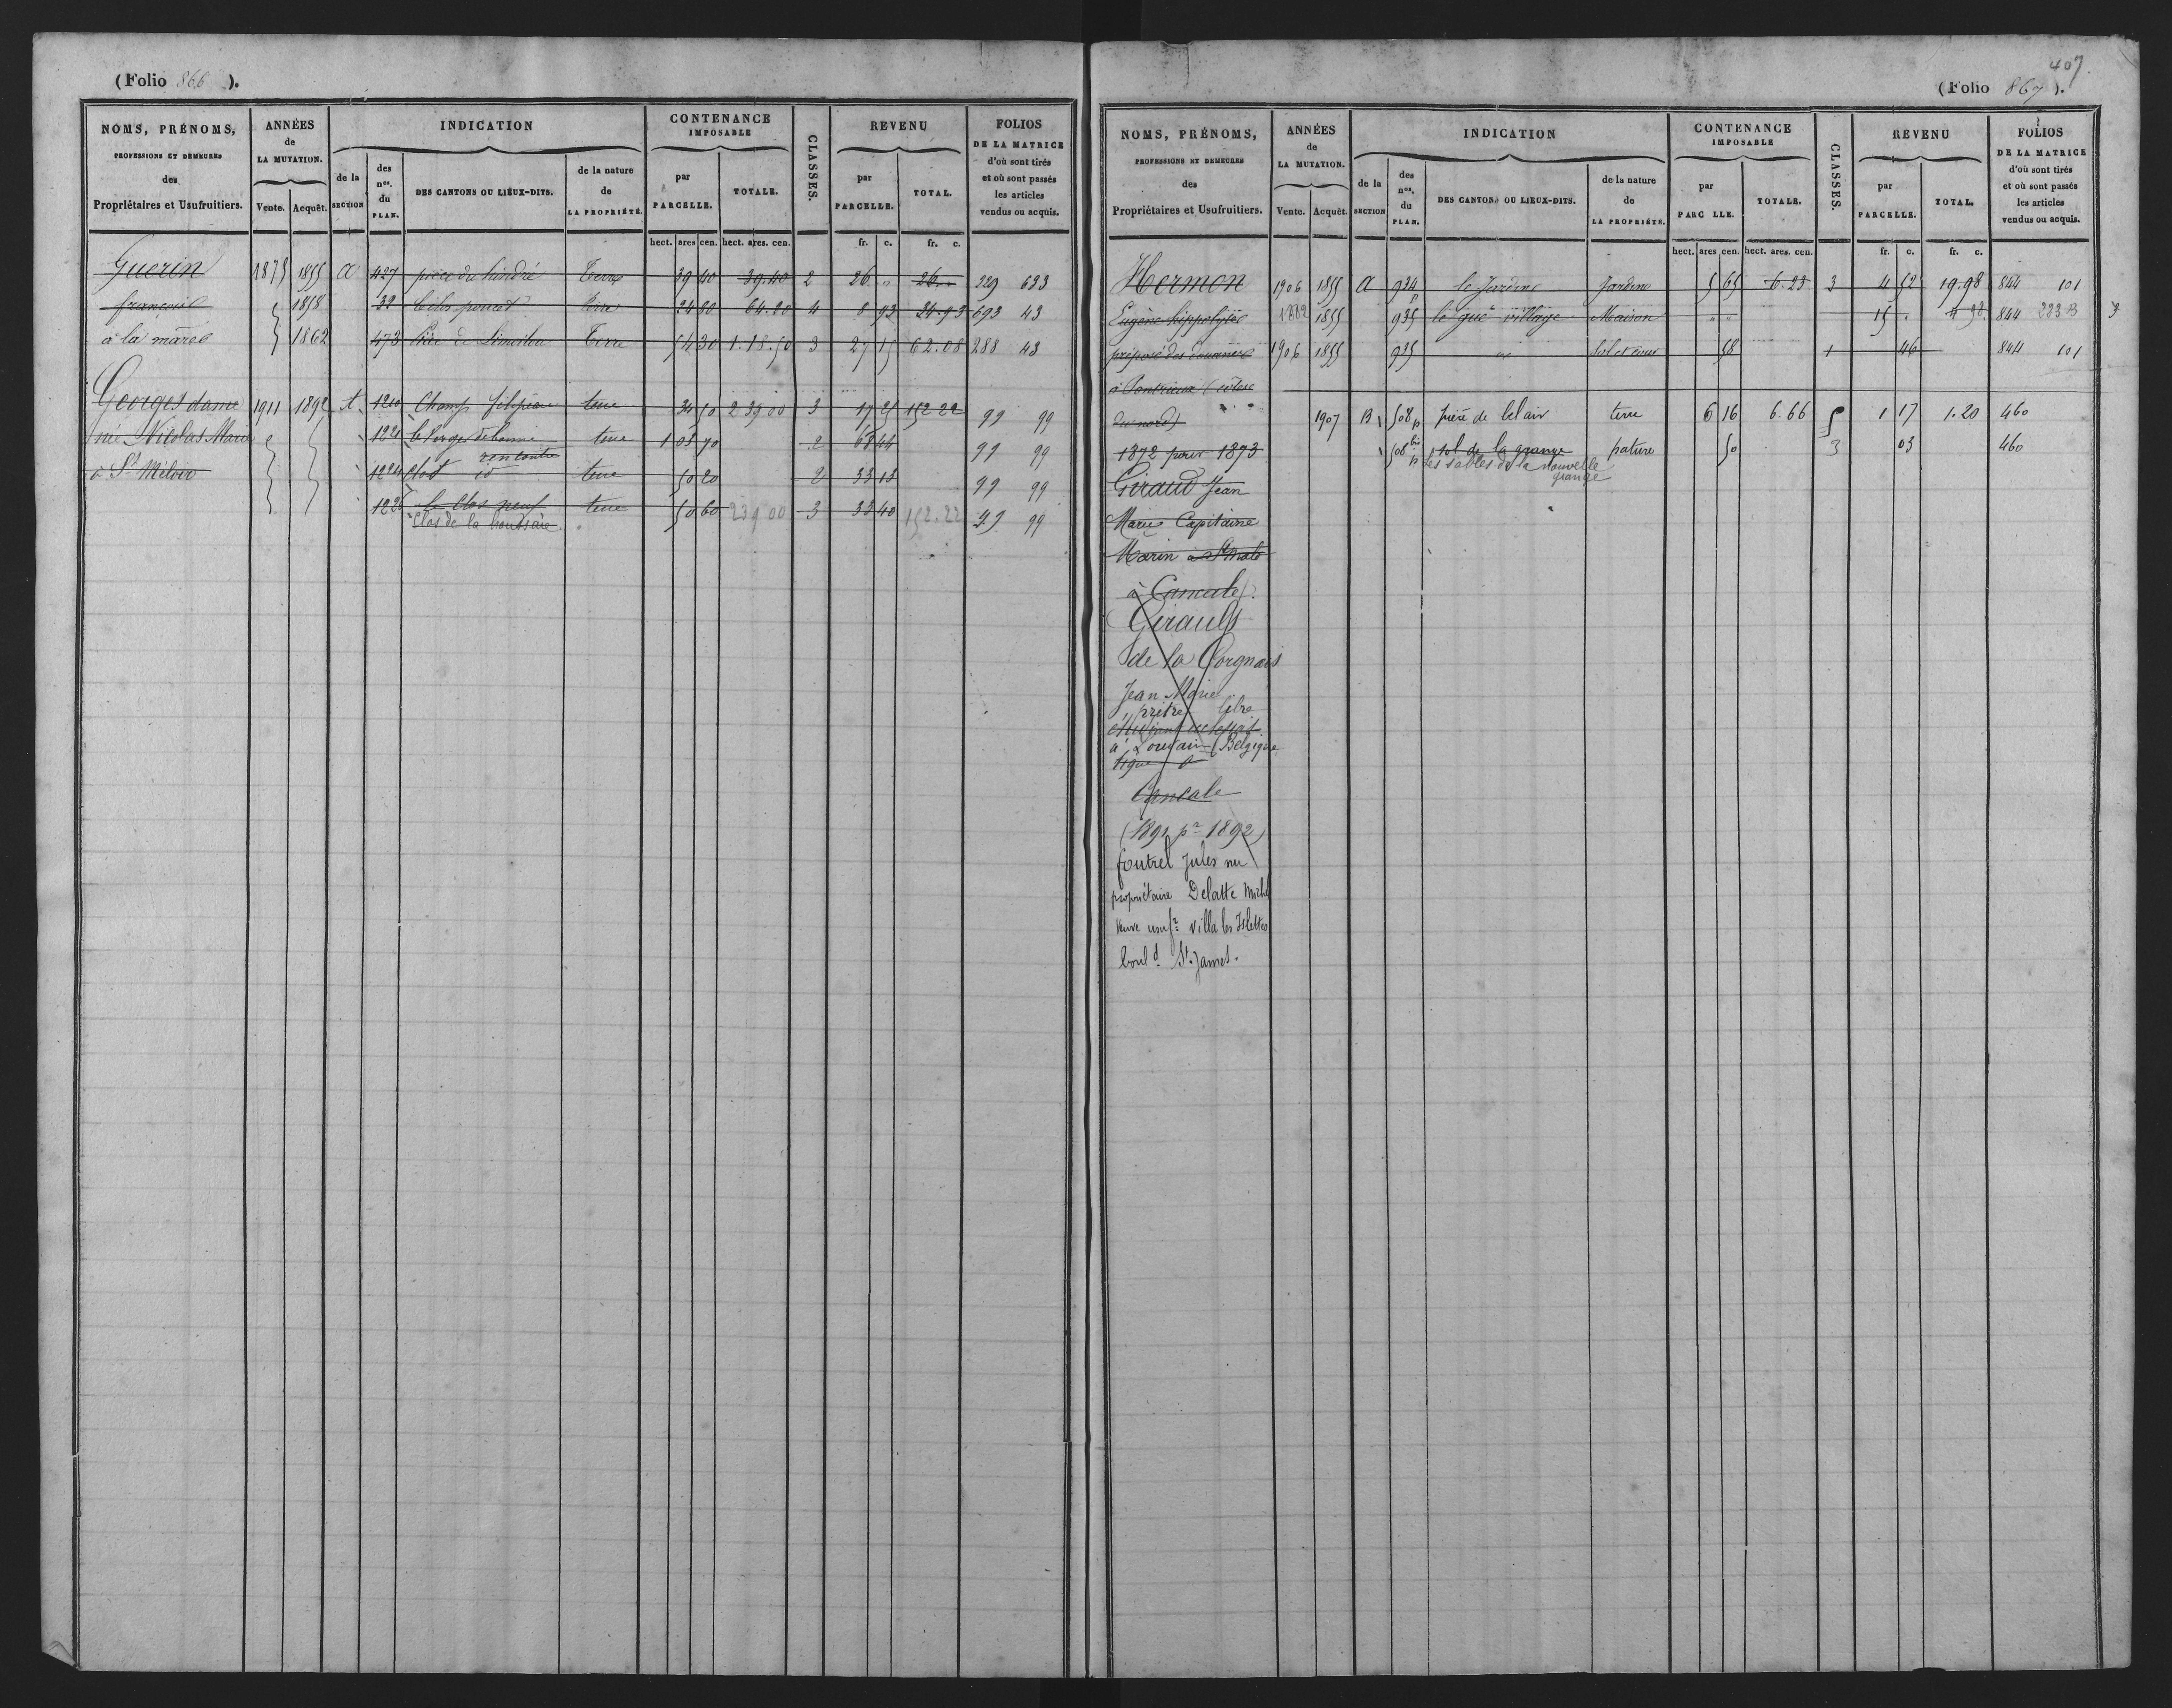 (Folio 866).
NOMS, PRÉNOMS, PROFESSIONS ET DEMEURES des Propriétaires et Usufruitiers.
ANNÉES de LA MUTATION.
Vente. Acquêt.
INDICATION
de la SECTION
des nos. du PLAN.
DES CANTONS OU LIEUX-DITS.
de la nature de LA PROPRIÉTÉ.
CONTENANCE IMPOSABLE
par PARCELLE.
TOTALE.
CLASSES.
REVENU
par PARCELLE.
TOTAL.
FOLIOS DE LA MATRICE d'où sont tirés et où sont passés les articles vendus ou acquis.
hect. ares cen. hect. ares. cen. fr. c. fr. c.
Guerin 1875 1855 a 427 pièce du hindré Terre 39 40 39.40 2 26 " 26 " 329 693
françois 1858 32 le clos poncet terre 24 80 64.20 4 8 93 34.93 693 43
à la mare 1862 473 Terre 54 30 1.18.50 3 27 15 62.08 288 43
Georges dame 1911 1892 A 1210 Champ terre 34 50 2 39 00 3 17 25 152 22 99 99
née Nicolas Marie 1221 de bonne rencontre terre 1 03 70 2 68 44 99 99
à St Méloir 1224 clos id terre 50 20 2 33 13 99 99
1226 Le Clos neuf terre 50 60 239 00 3 33 40 152.22 99 99
Clos de la
407.
(Folio 867).
NOMS, PRÉNOMS, PROFESSIONS ET DEMEURES des Propriétaires et Usufruitiers.
ANNÉES de LA MUTATION.
Vente. Acquêt.
INDICATION
de la SECTION
des nos. du PLAN.
DES CANTONS OU LIEUX-DITS.
de la nature de LA PROPRIÉTÉ.
CONTENANCE IMPOSABLE
par PARC LLE.
TOTALE.
CLASSES.
REVENU
par PARCELLE.
TOTAL.
FOLIOS DE LA MATRICE d'où sont tirés et où sont passés les articles vendus ou acquis.
hect. ares cen. hect. ares. cen. fr. c. fr. c.
Hermon 1906 1855 a 934 p le Jardin Jardin 5 65 6.23 3 4 52 19.98 844 101
Eugène hippolyte 1882 1855 935 le gué village Maison " " 15 . 4 98 844 283
préposé des douanes 1906 1855 935 id Sol et cour 58 1 46 844 101
à Pontrieux (côtes
du nord) 1907 B 508 p pièce de bel air terre 6 16 6.66 5 1 17 1.20 460
1872 pour 1873 508 bis p sol de la grange pature 50 3 03 460
les sables de la nouvelle grange
Giraud Jean
Marie Capitaine
Marin à St Malo
à Cancale
Girault
de la Corgnais
Jean Marie
prêtre libre
à Louvain (Belgique
tique à
Cancale
(1891 pr 1892)
foutrel Jules nu
propriétaire Delatte Michel
Veuve usufre villa les Islettes
boul d St. James.